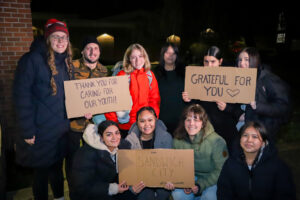 THANK YOU FOR
CARING FOR
OUR YOUTH!
GRATEFUL FOR
YOU ♡
SANDWICH
CITY